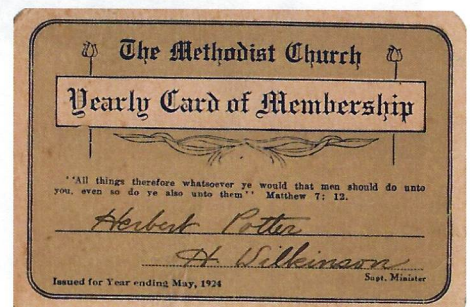 The Methodist Church
Yearly Card of Membership
''All things therefore whatsoever ye would that men should do unto
you, even so do ye also unto them'' Matthew 7; 12.
Herbert Potter
H. Wilkinson
Issued for Year ending May, 1924 Supt. Minister